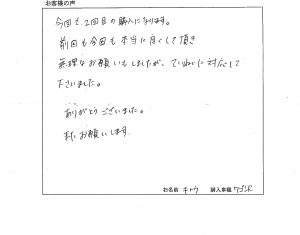 お客様の声
今回も2回目の購入になります。
前回も今回も本当に良くして頂き
無理なお願いもしましたが、ていねいに対応して
下さいました。
ありがとうございました。
またお願いします。
お名前 キトウ 購入車種 ワゴンR